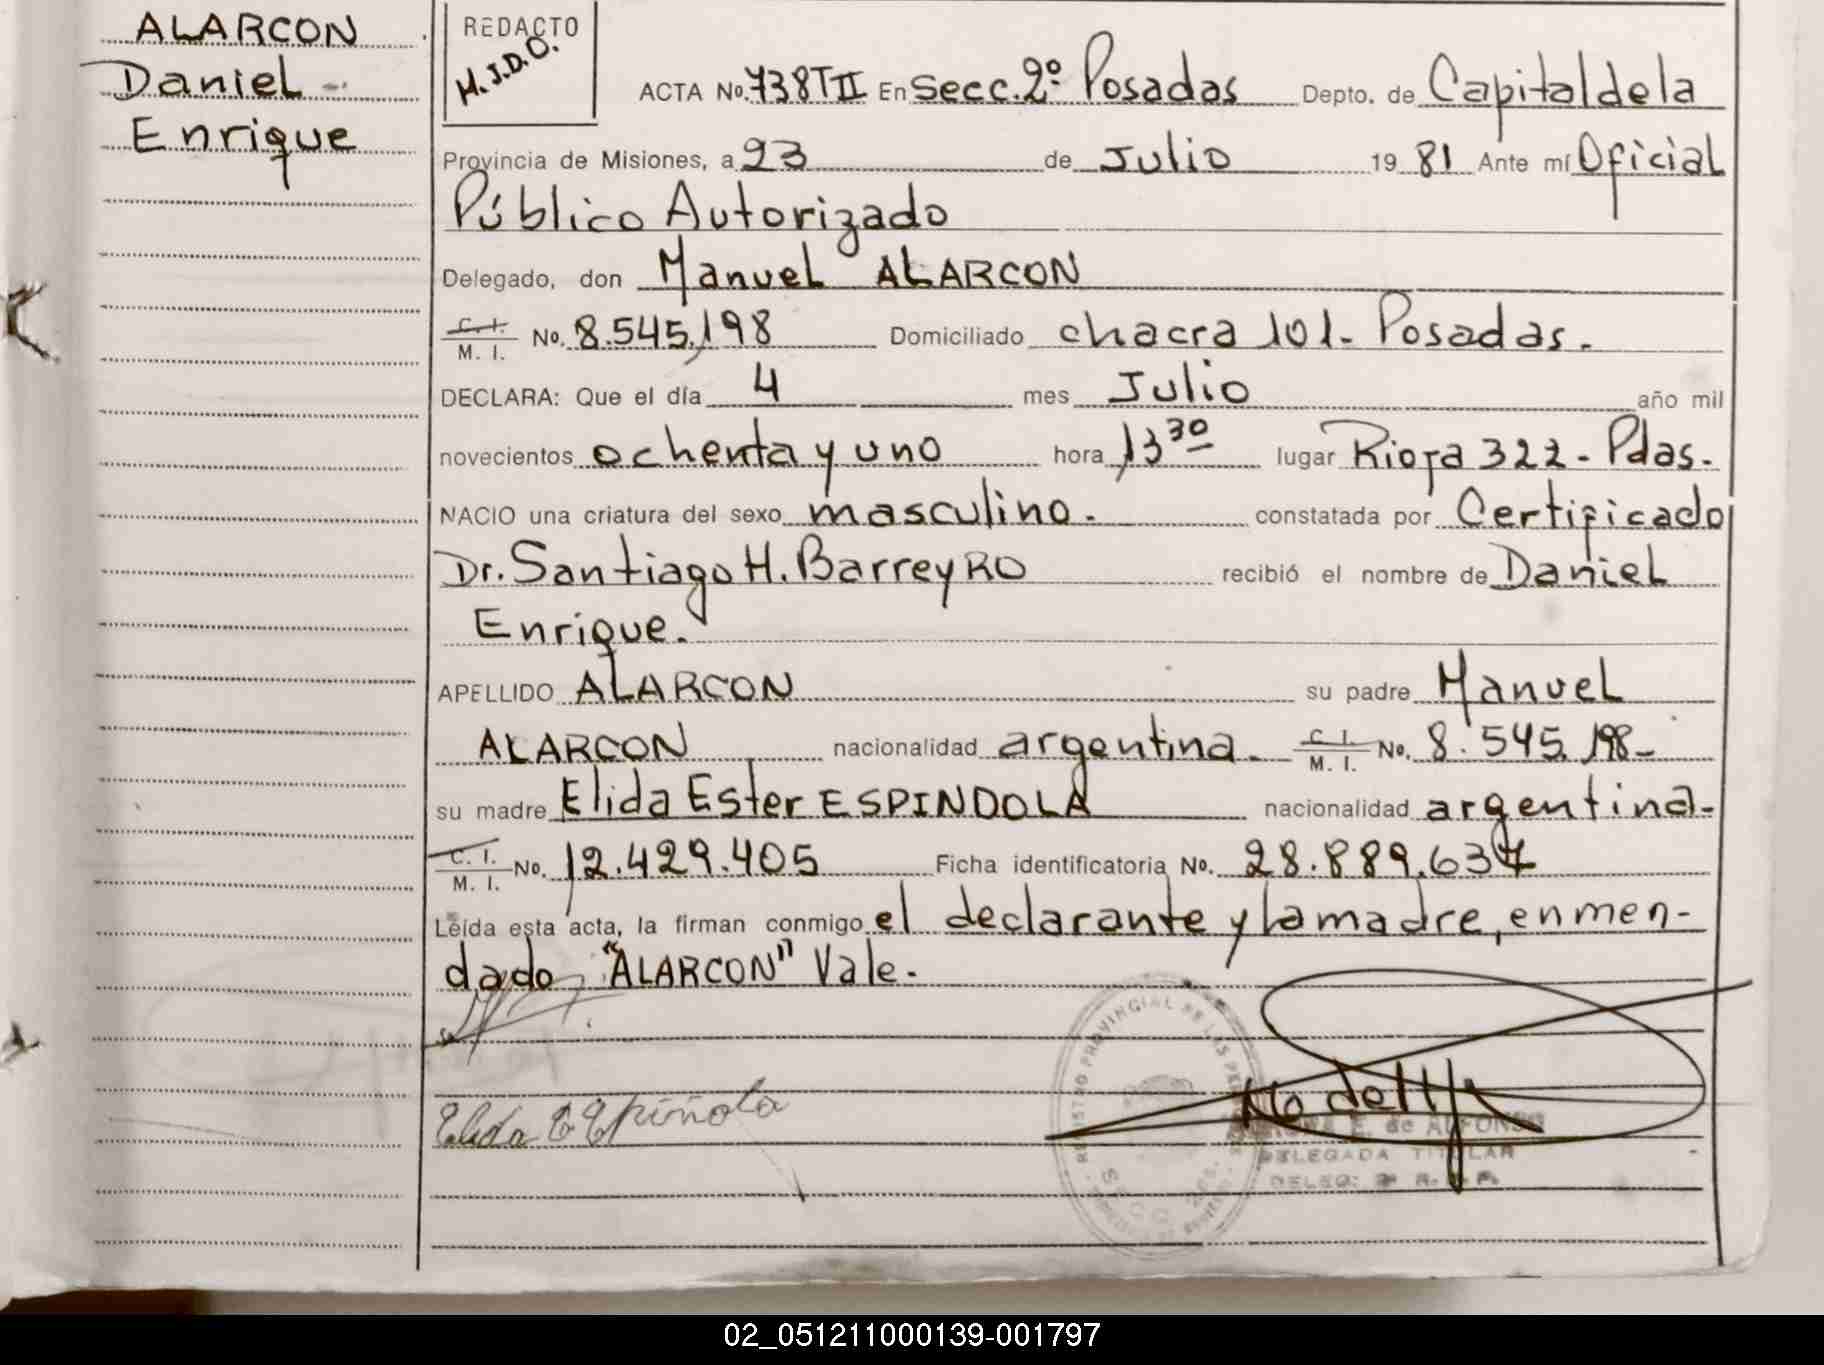 ALARCON
Daniel
Enrique
REDACTO
M.J.D.O.
ACTA No. 738TII En Secc. 2º Posadas Depto. de Capital de la
Provincia de Misiones, a 23 de Julio 19 81 Ante mí Oficial
Público Autorizado
Delegado, don Manuel ALARCON
C. I.
M. I. No. 8.545.198 Domiciliado chacra 101- Posadas.
DECLARA: Que el día 4 mes Julio año mil
novecientos ochenta y uno hora 13 30 lugar Rioja 322- Pdas.
NACIO una criatura del sexo masculino. constatada por Certificado
Dr. Santiago H. Barreyro recibió el nombre de Daniel
Enrique.
APELLIDO ALARCON su padre Manuel
ALARCON nacionalidad argentina. C. I. M. I. No. 8.545.198-
su madre Elida Ester ESPINDOLA nacionalidad argentina-
C. I.
M. I. No. 12.429.405 Ficha identificatoria No. 28.889.637
Leída esta acta, la firman conmigo el declarante y la madre, enmen-
dado "ALARCON" Vale.
REGISTRO PROVINCIAL DE LAS PER
SECC
Elida E Espiñola
E. de ALFONSO
DELEGADA TITULAR
02_051211000139-001797